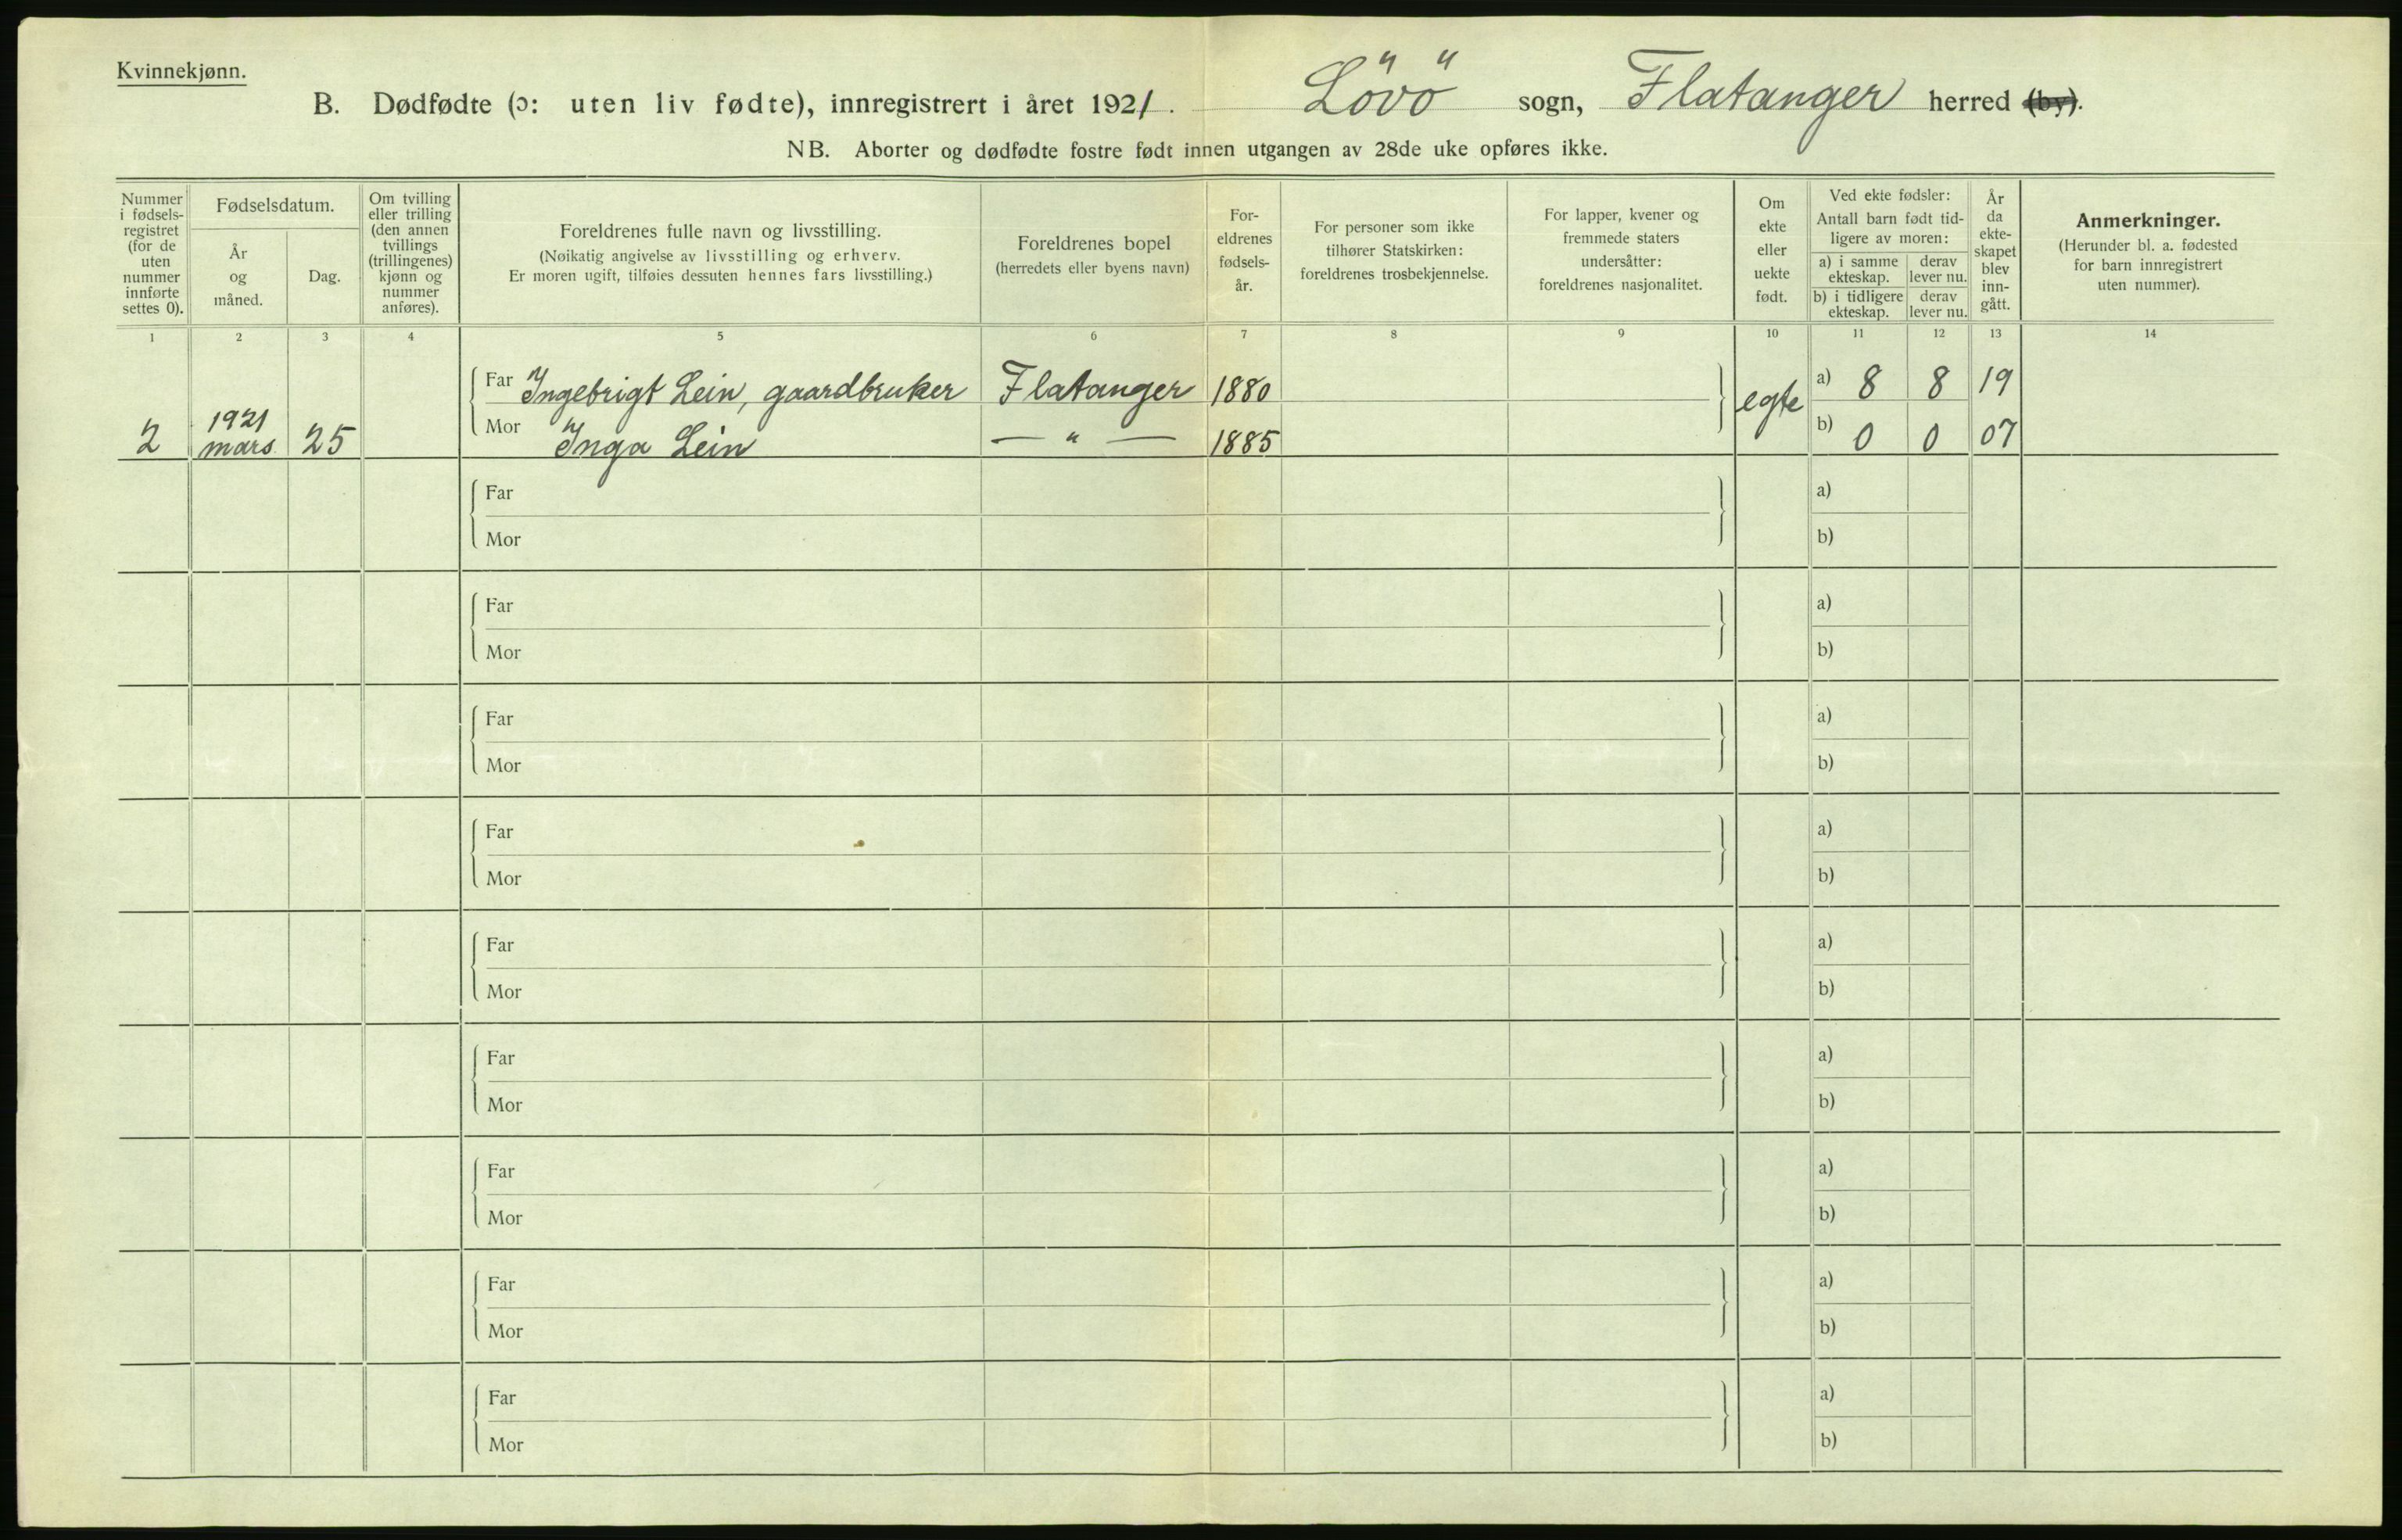 Kvinnekjønn.
B. Dødfødte (ɔ: uten liv fødte), innregistrert i året 1921. Lövö sogn, Flatanger herred (by).
NB. Aborter og dødfødte fostre født innen utgangen av 28de uke opføres ikke.
Nummer
i fødsels-
registret
(for de
uten
nummer
innførte
settes 0).
Fødselsdatum.
År
og
måned.
Dag.
Om tvilling
eller trilling
(den annen
tvillings
(trillingenes)
kjønn og
nummer
anføres).
Foreldrenes fulle navn og livsstilling.
(Nøikatig angivelse av livsstilling og erhverv.
Er moren ugift, tilføies dessuten hennes fars livsstilling.)
Foreldrenes bopel
(herredets eller byens navn)
For-
eldrenes
fødsels-
år.
For personer som ikke
tilhører Statskirken:
foreldrenes trosbekjennelse.
For lapper, kvener og
fremmede staters
undersåtter:
foreldrenes nasjonalitet.
Om
ekte
eller
uekte
født.
Ved ekte fødsler:
Antall barn født tid-
ligere av moren:
a) i samme
ekteskap.
derav
lever nu.
b) i tidligere
ekteskap.
derav
lever nu.
År
da
ekte-
skapet
blev
inn-
gått.
Anmerkninger.
(Herunder bl. a. fødested
for barn innregistrert
uten nummer).
1 2 3 4 5 6 7 8 9 10 11 12 13 14
Far Ingebrigt Lein, gaardbruker Flatanger 1880 egte a) 8 8 19
2 1921 mars 25 Mor Inga Lein — " — 1885 b) 0 0 07
Far a)
Mor b)
Far a)
Mor b)
Far a)
Mor b)
Far a)
Mor b)
Far a)
Mor b)
Far a)
Mor b)
Far a)
Mor b)
Far a)
Mor b)
Far a)
Mor b)